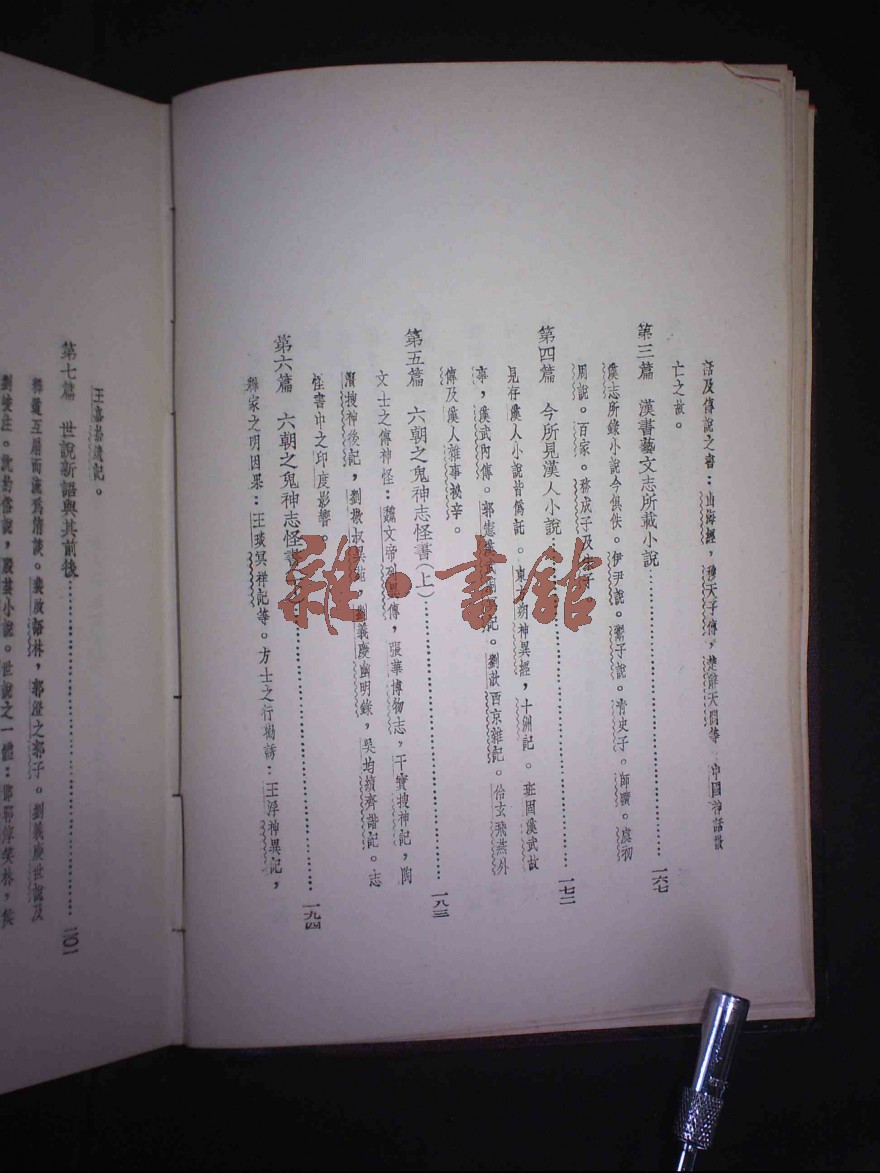 話及傳說之書：山海經，穆天子傳，楚辭天問等。中國神話散
亡之故。
第三篇　漢書藝文志所載小說……一六七
漢志所錄小說今俱佚。伊尹說。鬻子說。青史子。師曠。虞初
周說。百家。務成子及
第四篇　今所見漢人小說……一七二
見存漢人小說皆僞託。東方朔神異經，十洲記。班固漢武故
事，漢武內傳。郭憲漢武洞冥記。劉歆西京雜記。伶玄飛燕外
傳及漢人雜事祕辛。
第五篇　六朝之鬼神志怪書（上）……一八三
文士之傳神怪：魏文帝列異傳，張華博物志，干寶搜神記，陶
潛搜神後記，劉敬叔異苑，劉義慶幽明錄，吳均續齊諧記。志
怪書中之印度影響。
第六篇　六朝之鬼神志怪書……一九四
釋家之明因果：王琰冥祥記等。方士之行勸誘：王浮神異記，
王嘉拾遺記。
第七篇　世說新語與其前後……二〇一
釋道互扇而流爲清談。裴啟語林，郭澄之郭子。劉義慶世說及
劉峻注。沈約俗說，殷芸小說。世說之一體：邯鄲淳笑林，侯
雜·書館